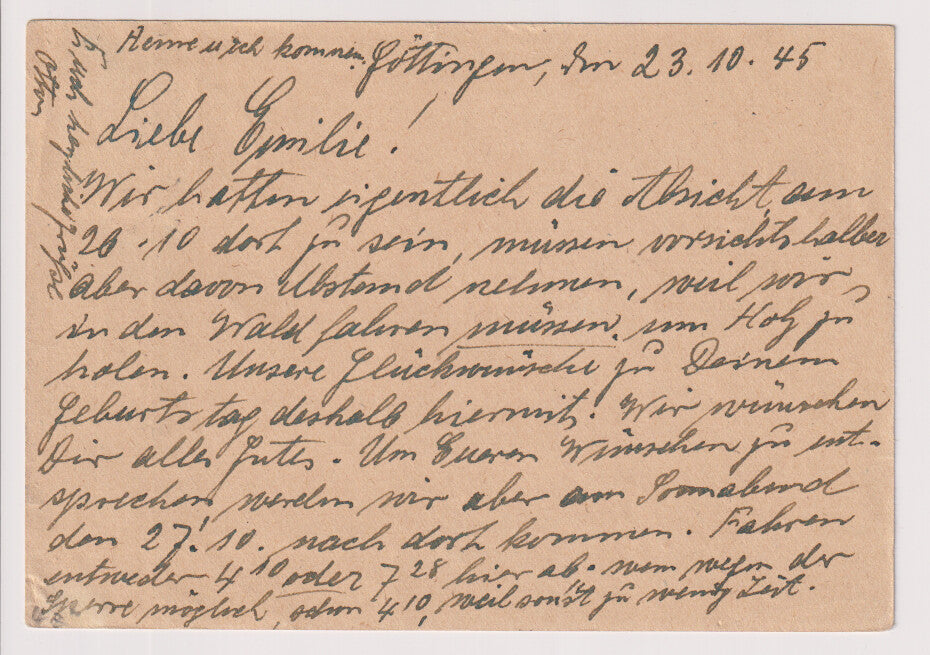 kommen.
Göttingen, den 23.10.45
Liebe Emilie!
Wir hatten eigentlich die Absicht, am
26.10 dort zu sein, müssen vorsichtshalber
aber davon Abstand nehmen, weil wir
in den Wald fahren müssen, um Holz zu
holen. Unsere Glückwünsche zu Deinem
Geburtstag deshalb hiermit. Wir wünschen
Dir alles Gute. Um Eueren Wünschen zu ent-
sprechen werden wir aber am Sonnabend
den 27.10. nach dort kommen. Fahren
entweder 4 10 oder 7 28 hier ab. wenn wegen der
Sperre möglich, schon 4 10, weil sonst zu wenig Zeit.